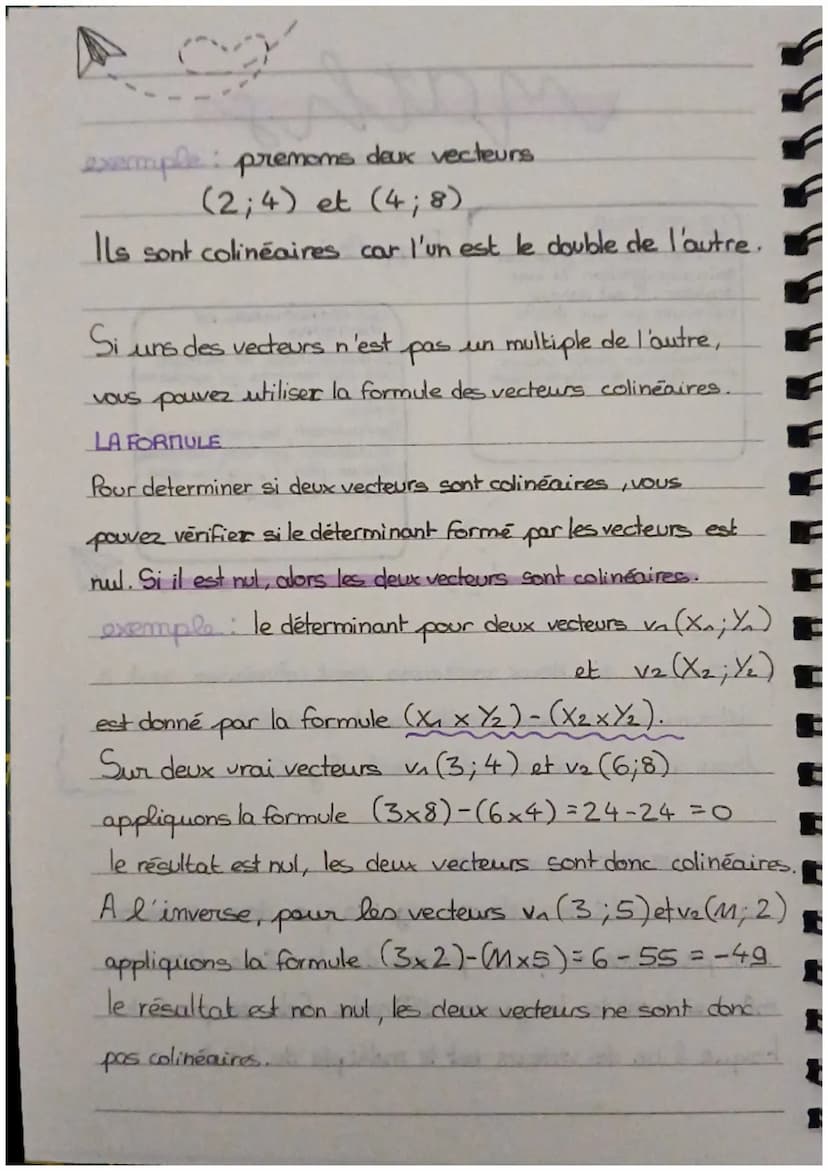 exemple : prenons deux vecteurs
(2;4) et (4;8)
Ils sont colinéaires car l'un est le double de l'autre.
Si uns des vecteurs n'est pas un multiple de l'autre,
vous pouvez utiliser la formule des vecteurs colinéaires.
LA FORMULE
Pour determiner si deux vecteurs sont colinéaires, vous
pouvez vérifier si le déterminant formé par les vecteurs est
nul. Si il est nul, alors les deux vecteurs sont colinéaires.
exemple : le déterminant pour deux vecteurs v1(X1;Y1)
et v2(X2;Y2)
est donné par la formule (X1 x Y2)-(X2xY2).
Sur deux vrai vecteurs v1(3;4) et v2(6;8)
appliquons la formule (3x8)-(6x4)=24-24=0
le résultat est nul, les deux vecteurs sont donc colinéaires.
A l'inverse, pour les vecteurs v1(3;5)et v2(11;2)
appliquons la formule (3x2)-(11x5)=6-55=-49
le résultat est non nul, les deux vecteurs ne sont donc
pas colinéaires.